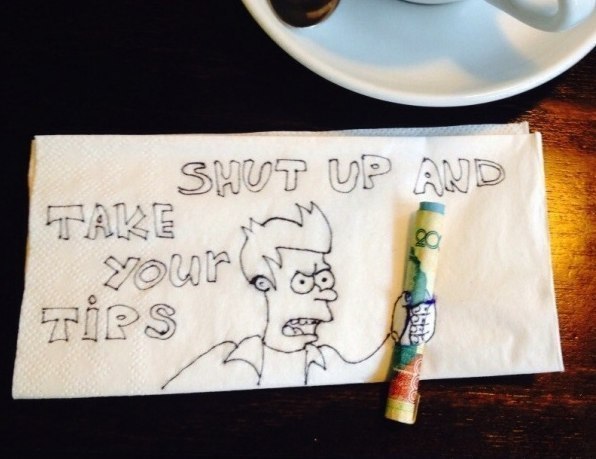 SHUT UP AND
TAKE
YOUR
TiPS
200